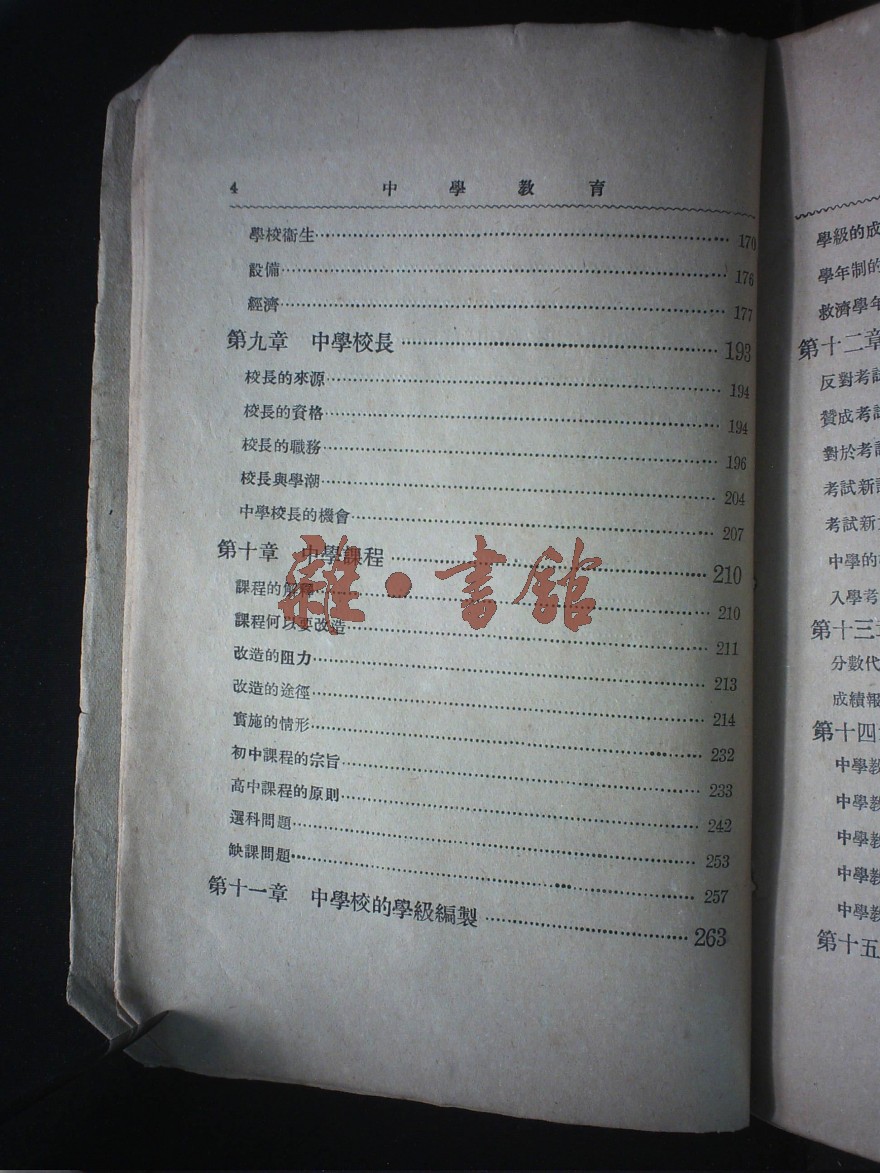 4 中學教育
學校衞生 170
設備 176
經濟 177
第九章 中學校長 193
校長的來源 194
校長的資格 194
校長的職務 196
校長與學潮 204
中學校長的機會 207
第十章 中學課程 210
課程的解釋 210
課程何以要改造 211
改造的阻力 213
改造的途徑 214
實施的情形 232
初中課程的宗旨 233
高中課程的原則 242
選科問題 253
缺課問題 257
第十一章 中學校的學級編製 263
雜·書館
學級的成
學年制的
救濟學年
第十二章
反對考試
贊成考試
對於考試
考試新
考試新
中學的
入學考
第十三章
分數代
成績報
第十四
中學教
中學教
中學教
中學教
中學教
第十五